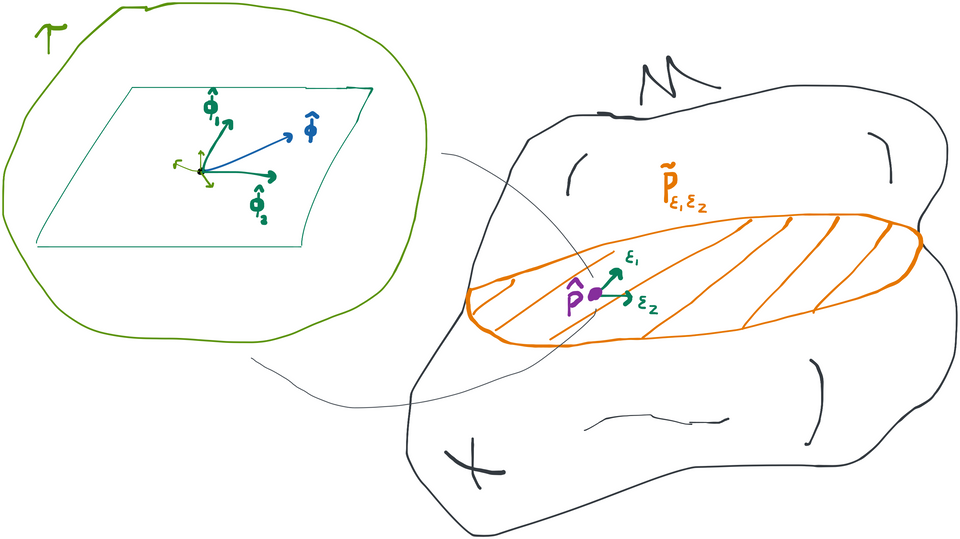 T
ϕ̂₁
ϕ̂
ϕ̂₂
M
P̃_ε₁ε₂
ε₁
P̂
ε₂